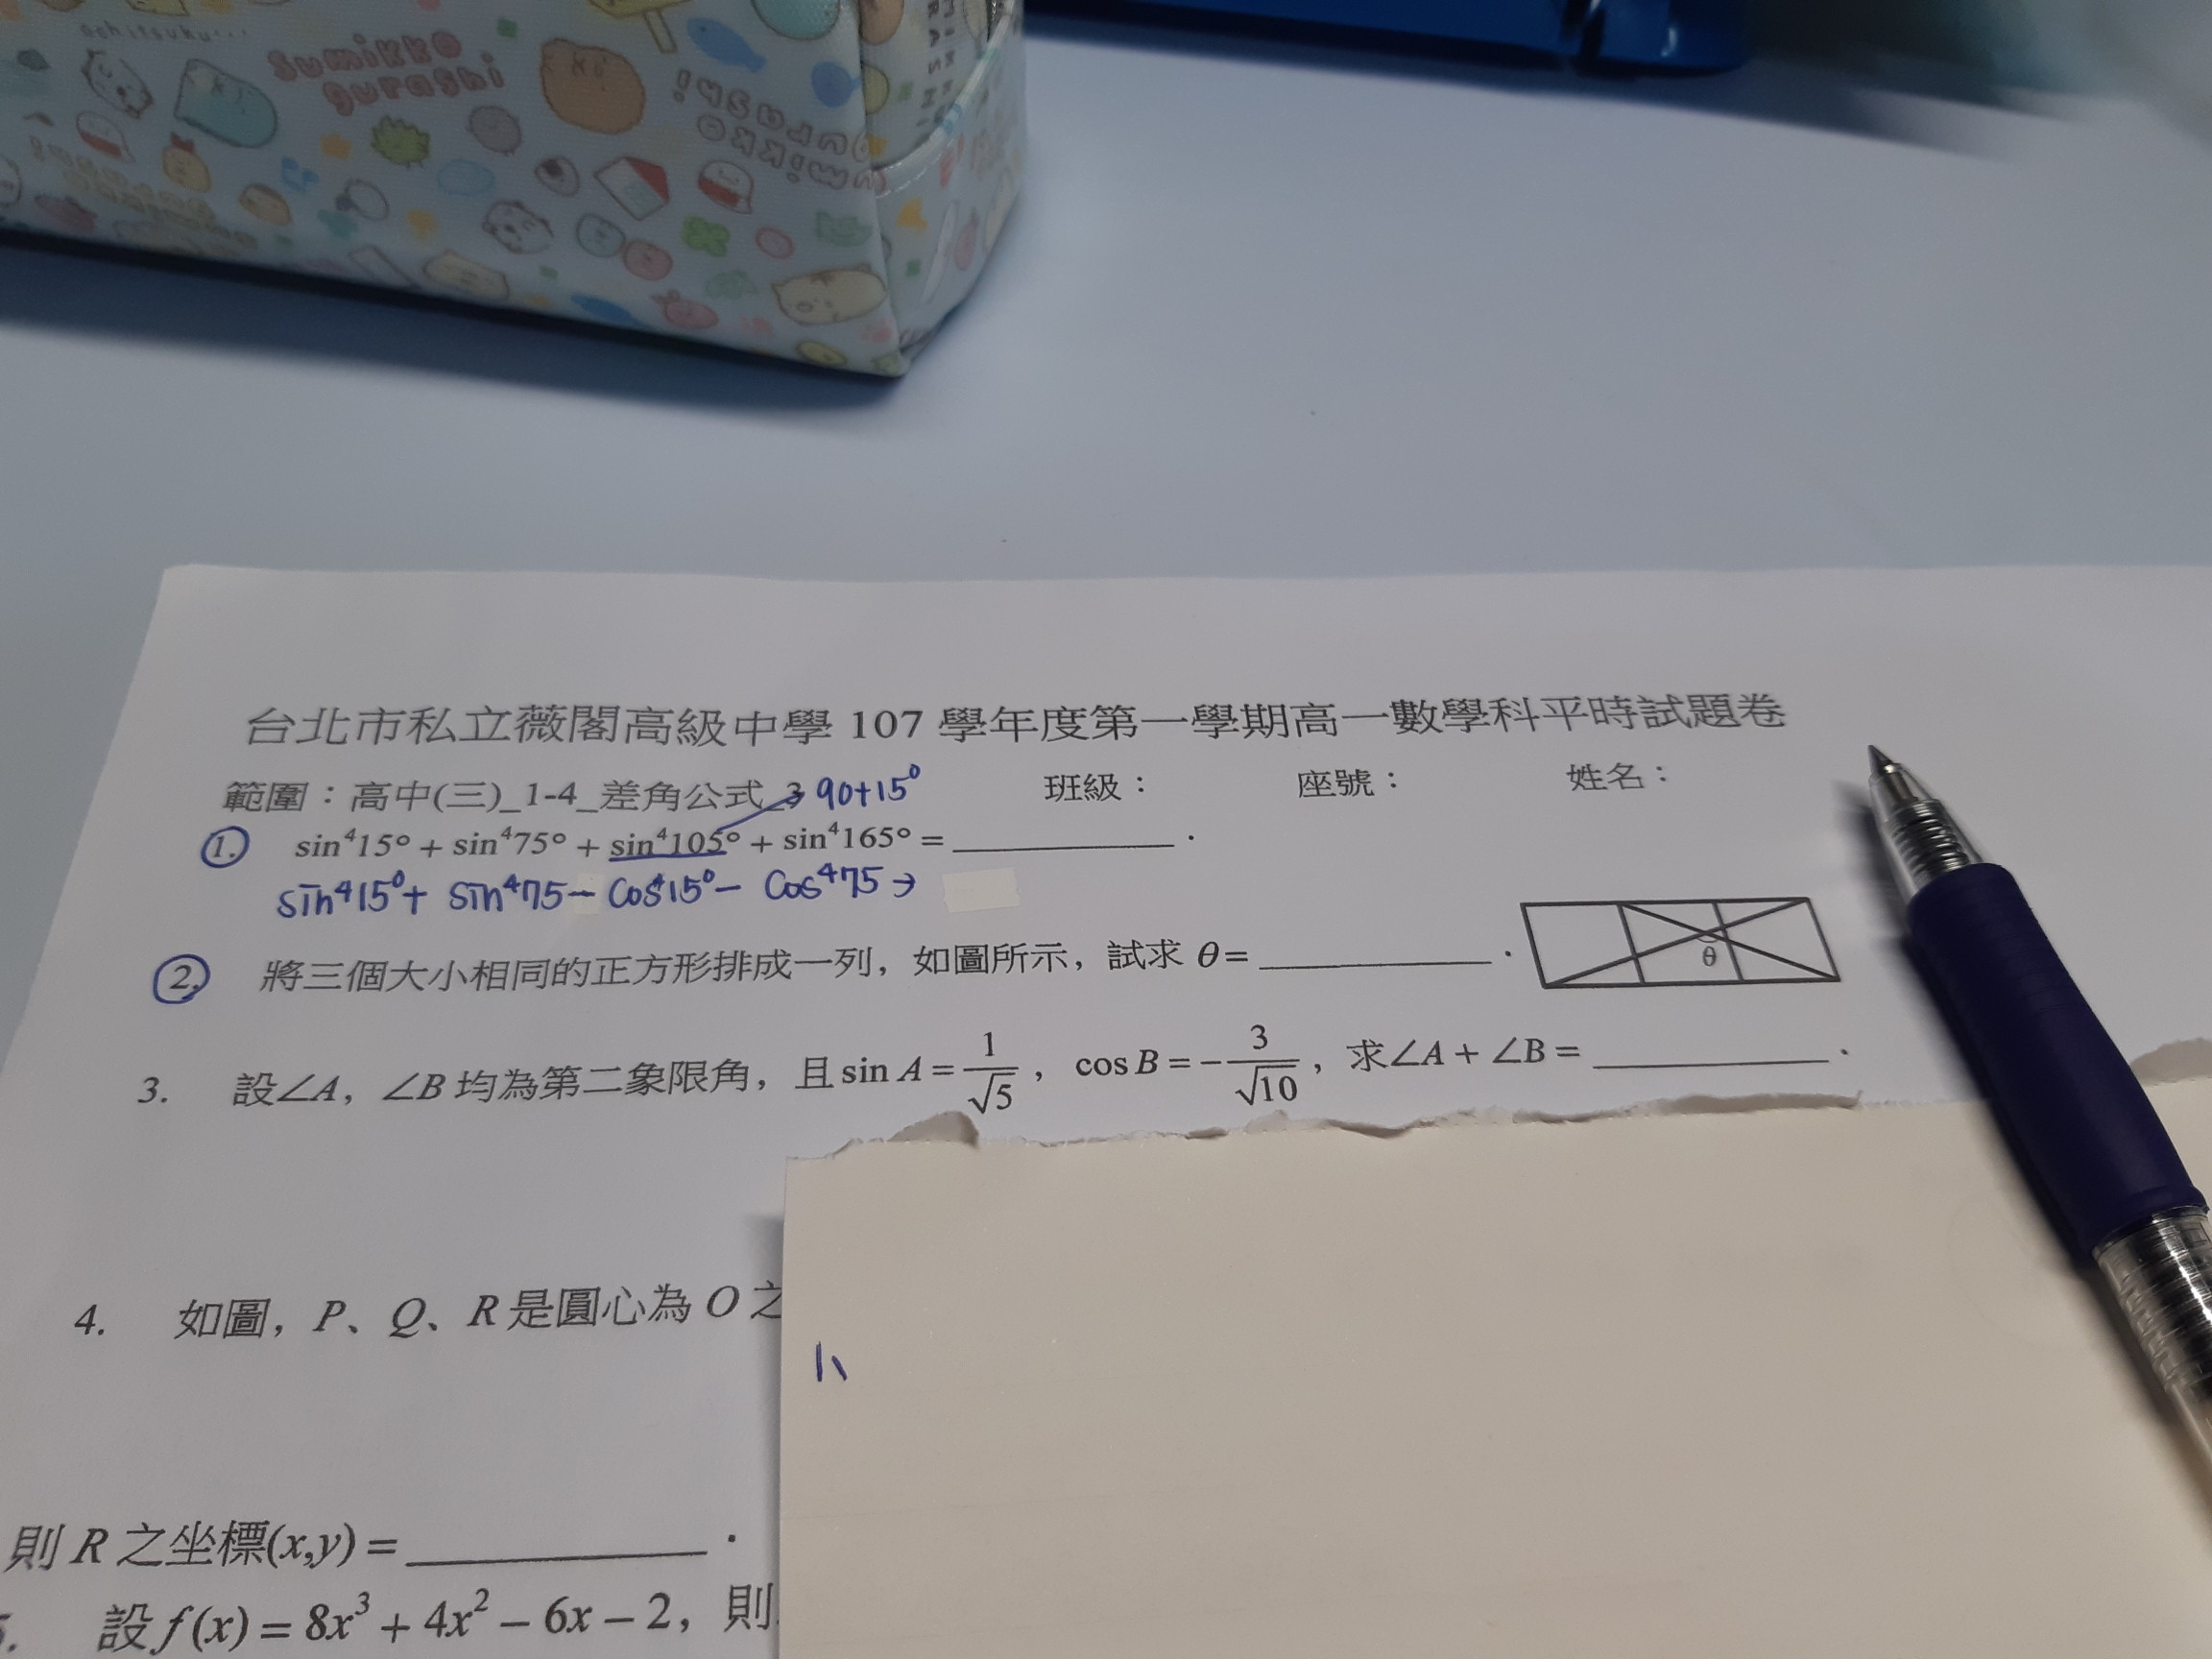 sumikko
gurashi
台北市私立薇閣高級中學 107 學年度第一學期高一數學科平時試題卷
範圍：高中(三)_1-4_差角公式_3 班級： 座號： 姓名：
90+15°
1. sin⁴15° + sin⁴75° + sin⁴105° + sin⁴165° = ________．
sin⁴15° + sin⁴75 − cos⁴15° − cos⁴75 →
2. 將三個大小相同的正方形排成一列，如圖所示，試求 θ= ________．
θ
3. 設∠A，∠B 均為第二象限角，且 sin A = 1/√5，cos B = −3/√10，求∠A + ∠B = ________．
4. 如圖，P、Q、R 是圓心為 O 之
則 R 之坐標(x,y) = ________．
設 f(x) = 8x³ + 4x² − 6x − 2，則